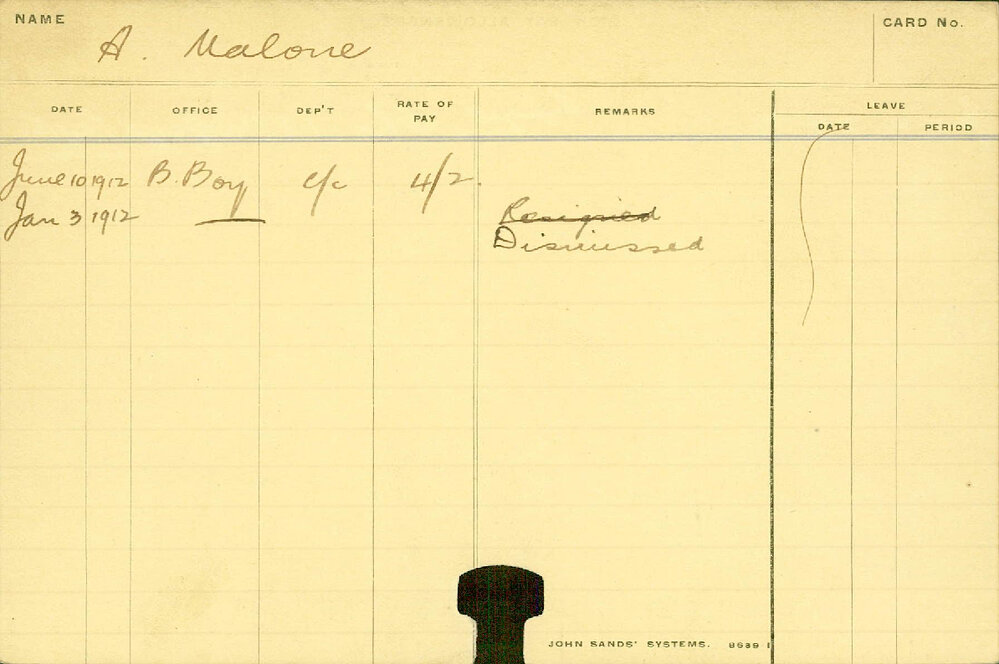 NAME A. Malone CARD No.
DATE OFFICE DEP'T RATE OF PAY REMARKS LEAVE
DATE PERIOD
June 10 1912 B. Boy c/c 4/2.
Jan 3 1912 — Resigned
Dismissed
JOHN SANDS' SYSTEMS. 8689 1